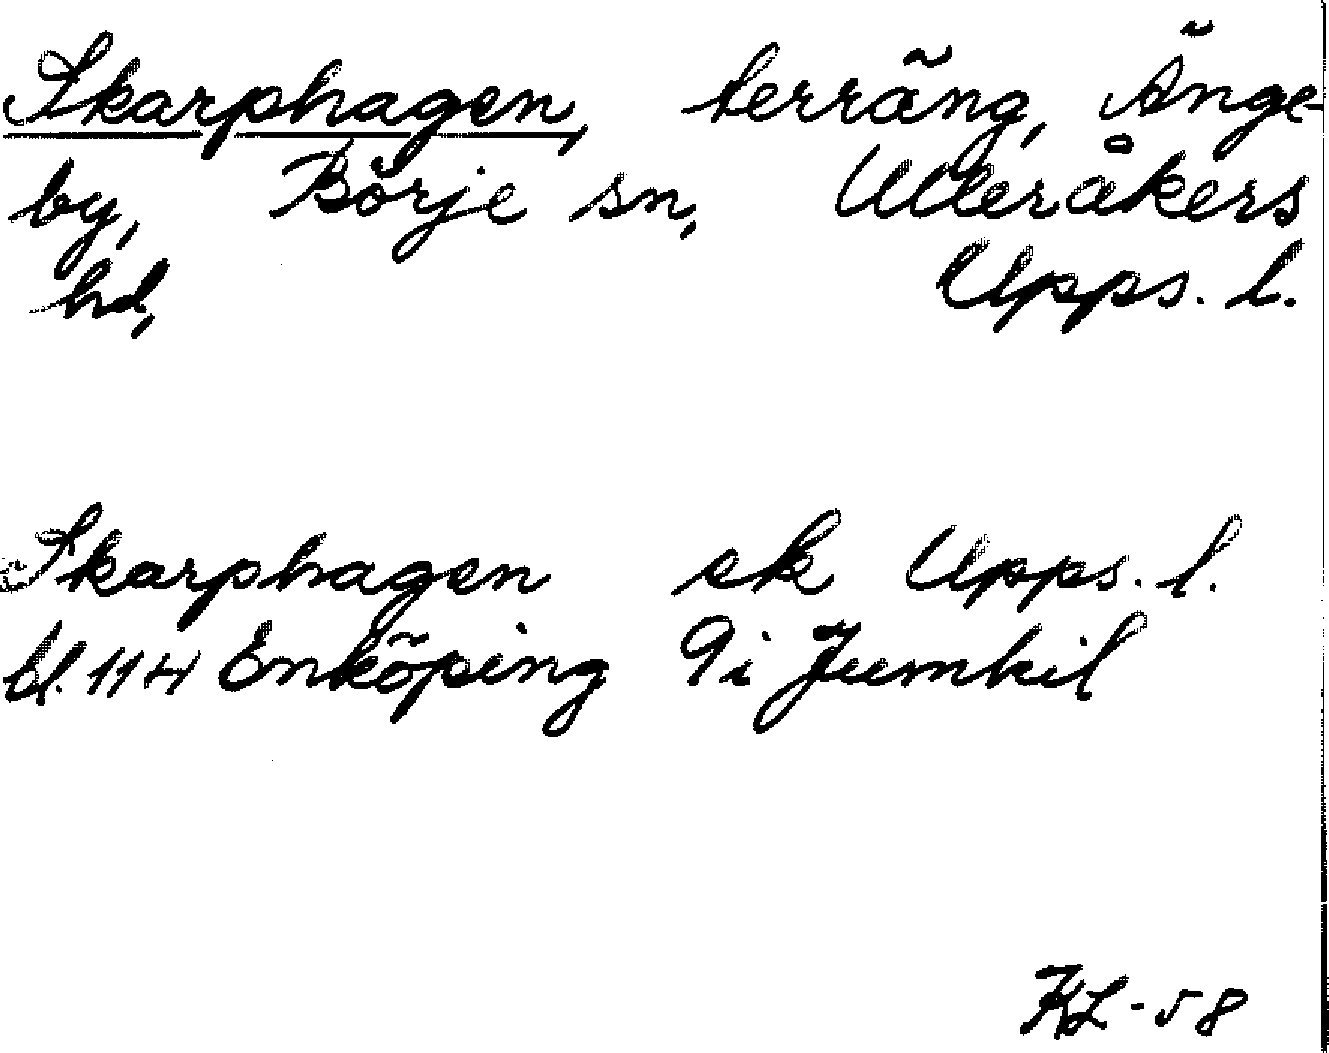 Skarphagen, terräng, Änge-
by, Börje sn, Ulleråkers
hd, Upps. l.
Skarphagen ek Upps. l.
bl. 114 Enköping 9i Jumkil
KL-58